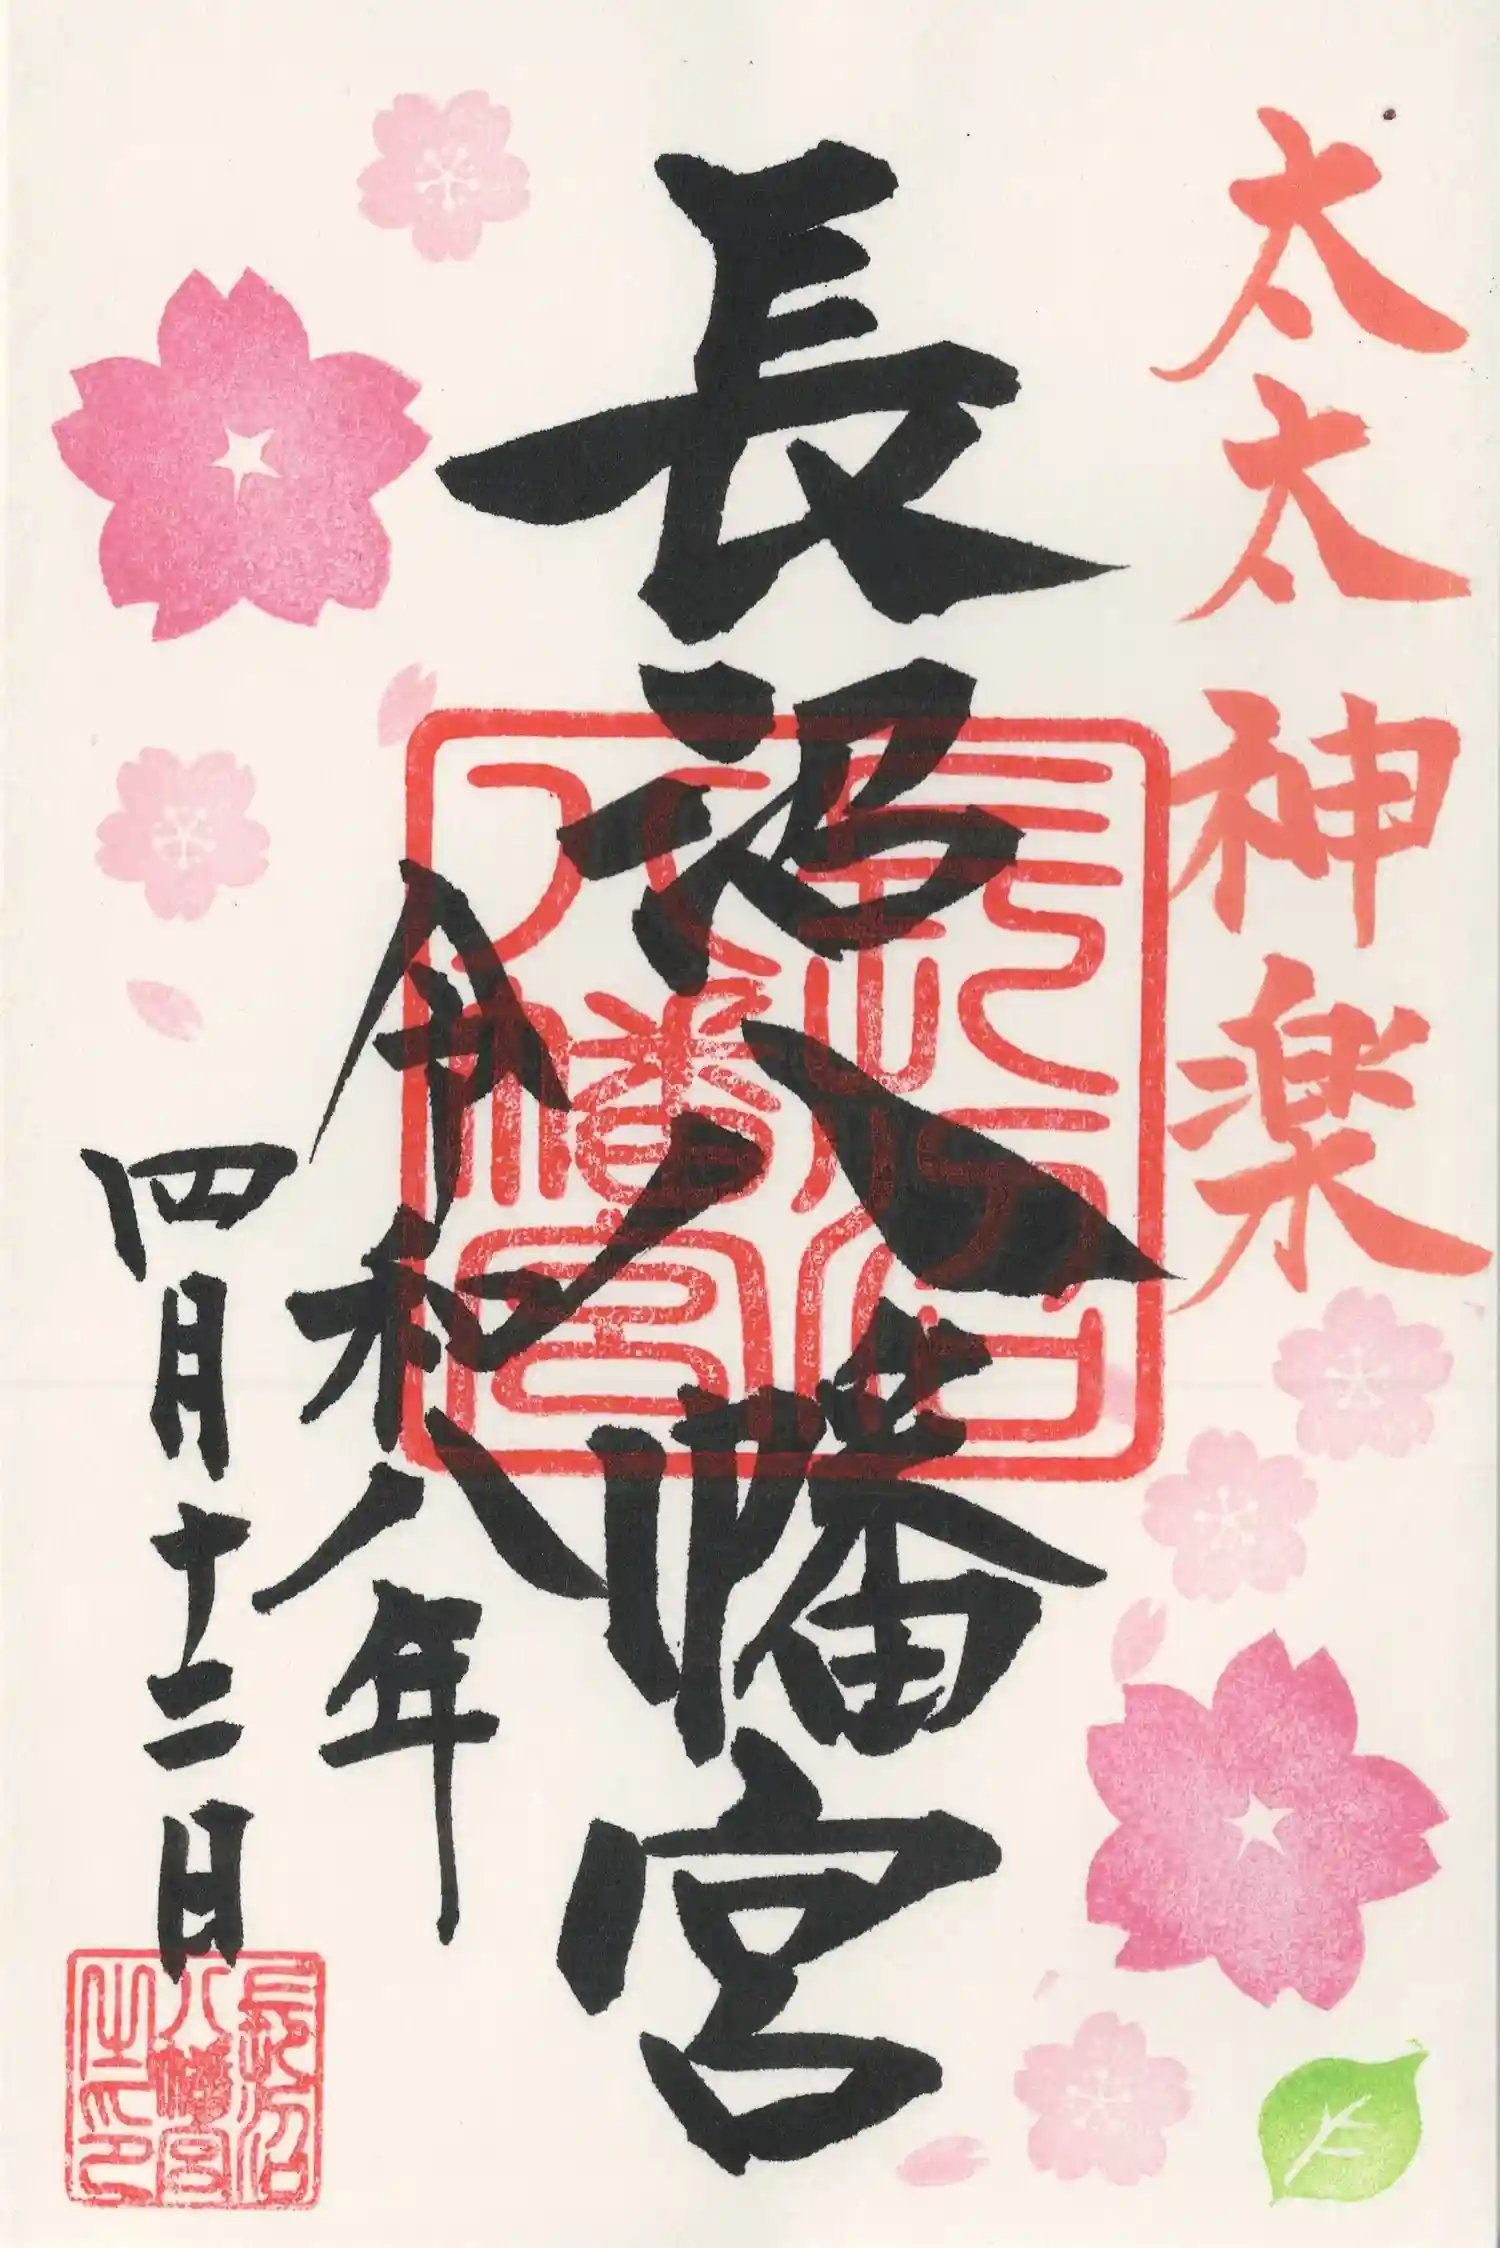 太太神楽
長沼八幡宮
令和八年
四月十二日
長沼八幡宮
長沼八幡宮之印